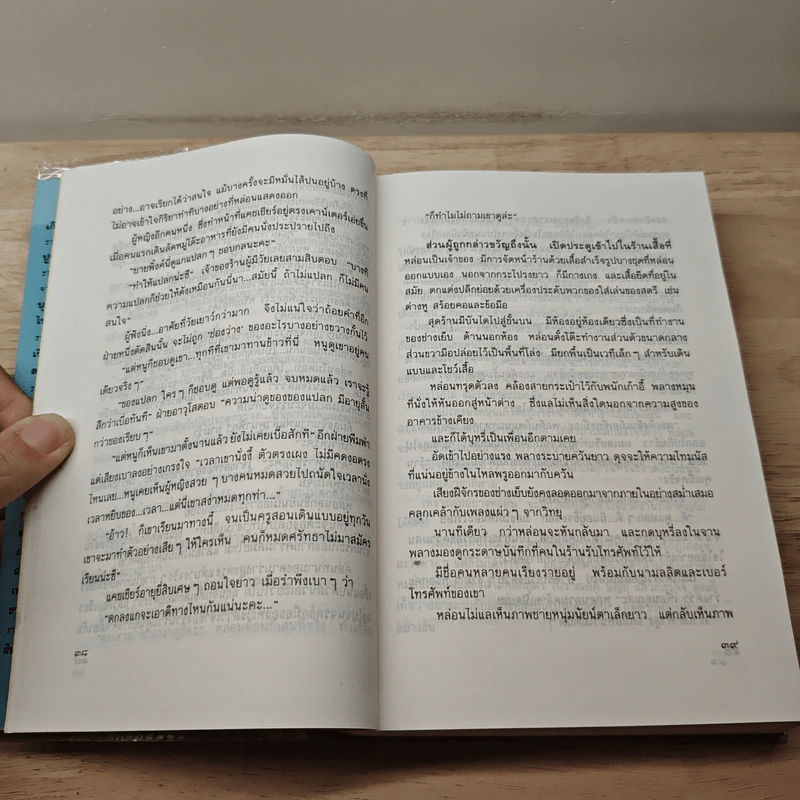 อย่าง...อาจเรียกได้ว่าสนใจ แม้บางครั้งจะมีหมั่นไส้ปนอยู่บ้าง ตรงที่
ไม่อาจเข้าใจกิริยาท่าทีบางอย่างที่หล่อนแสดงออก
ผู้หญิงอีกคนหนึ่ง ซึ่งทำหน้าที่แคชเชียร์อยู่ตรงเคาน์เตอร์เอ่ยขึ้น
เมื่อคนแรกเดินลัดหมู่โต๊ะอาหารที่ยังมีคนนั่งประปรายไปถึง
“ยายพิ้งค์นี่ดูแกแปลก ๆ ชอบกลนะคะ”
“ทำให้แปลกน่ะซี” เจ้าของร้านผู้มีวัยเลยสามสิบตอบ “บางที
ความแปลกก็ช่วยให้ดังเหมือนกันนี่นา...สมัยนี้ ถ้าไม่แปลก ก็ไม่มีคน
สนใจ”
ผู้ฟังนิ่ง...อาศัยที่วัยเยาว์กว่ามาก จึงไม่แน่ใจว่าถ้อยคำที่อีก
ฝ่ายหนึ่งตัดสินนั้น จะไม่ถูก ‘ช่องว่าง’ ของอะไรบางอย่างขวางกั้นไว้
“แต่หนูก็ชอบดูเขา...ทุกทีที่เขามาทานข้าวที่นี่ หนูดูเขาอยู่คน
เดียวจริงๆ”
“ของแปลก ใครๆ ก็ชอบดู แต่พอดูรู้แล้ว จบหมดแล้ว เราจะรู้
สึกว่าเบื่อทันที” ฝ่ายอาวุโสตอบ “ความน่าดูของของแปลก มีอายุสั้น
กว่าของเรียบๆ”
“แต่หนูก็เห็นเขามาตั้งนานแล้ว ยังไม่เคยเบื่อสักที” อีกฝ่ายพึมพำ
แต่เสียงเบาลงอย่างเกรงใจ “เวลาเขานั่งงี้ ตัวตรงเผง ไม่มีคดงอตรง
ไหนเลย...หนูเคยเห็นผู้หญิงสวย ๆ บางคนหมดสวยไปถนัดใจเวลานั่ง
เวลาหยิบของ...เวลา...แต่นี่เขาสง่าหมดทุกท่า...”
“อ้าว! ก็เขาเรียนมาทางนี้ จนเป็นครูสอนเดินแบบอยู่ทุกวัน
เขาจะมาทำตัวอย่างเสียๆ ให้ใครเห็น คนก็หมดศรัทธาไม่มาสมัคร
เรียนน่ะซิ”
แคชเชียร์อายุยี่สิบเศษๆ ถอนใจยาว เมื่อรำพึงเบาๆ ว่า
“ตกลงแกจะเอาดีทางไหนกันแน่นะคะ...”
๓๘
“ก็ทำไมไม่ถามเขาดูล่ะ”
ส่วนผู้ถูกกล่าวขวัญถึงนั้น เปิดประตูเข้าไปในร้านเสื้อที่
หล่อนเป็นเจ้าของ มีการจัดหน้าร้านด้วยเสื้อสำเร็จรูปบางชุดที่หล่อน
ออกแบบเอง นอกจากกระโปรงยาว ก็มีกางเกง และเสื้อยืดที่อยู่ใน
สมัย ตกแต่งปลีกย่อยด้วยเครื่องประดับพวกของใส่เล่นของสตรี เช่น
ต่างหู สร้อยคอและข้อมือ
สุดร้านมีบันไดไปสู่ชั้นบน มีห้องอยู่ห้องเดียวซึ่งเป็นที่ทำงาน
ของช่างเย็บ ด้านนอกห้อง หล่อนตั้งโต๊ะทำงานส่วนตัวขนาดกลาง
ส่วนขวามือปล่อยไว้เป็นพื้นที่โล่ง มียกพื้นเป็นเวทีเล็กๆ สำหรับเดิน
แบบและโชว์เสื้อ
หล่อนทรุดตัวลง คล้องสายกระเป๋าไว้กับพนักเก้าอี้ พลางหมุน
ที่นั่งให้หันออกสู่หน้าต่าง ซึ่งแลไม่เห็นสิ่งใดนอกจากความสูงของ
อาคารข้างเคียง
และก็ได้บุหรี่เป็นเพื่อนอีกตามเคย
อัดเข้าไปอย่างแรง พลางระบายควันยาว ดุจจะให้ความโทมนัส
ที่แน่นอยู่ข้างในไหลพรูออกมากับควัน
เสียงฝีจักรของช่างเย็บยังคงลอดออกมาจากภายในอย่างสม่ำเสมอ
คลุกเคล้ากับเพลงแผ่วๆ จากวิทยุ
นานทีเดียว กว่าหล่อนจะหันกลับมา และกดบุหรี่ลงในจาน
พลางมองดูกระดาษบันทึกที่คนในร้านรับโทรศัพท์ไว้ให้
มีชื่อคนหลายคนเรียงรายอยู่ พร้อมกับนามลลิตและเบอร์
โทรศัพท์ของเขา
หล่อนไม่แลเห็นภาพชายหนุ่มนัยน์ตาเล็กยาว แต่กลับเห็นภาพ
๓๙